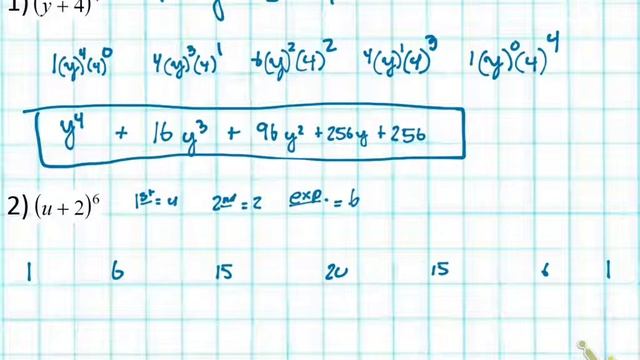 1) (y + 4)⁴
1(y)⁴(4)⁰ 4(y)³(4)¹ 6(y)²(4)² 4(y)¹(4)³ 1(y)⁰(4)⁴
y⁴ + 16y³ + 96y² + 256y + 256
2) (u + 2)⁶ 1st = u 2nd = 2 exp. = 6
1 6 15 20 15 6 1